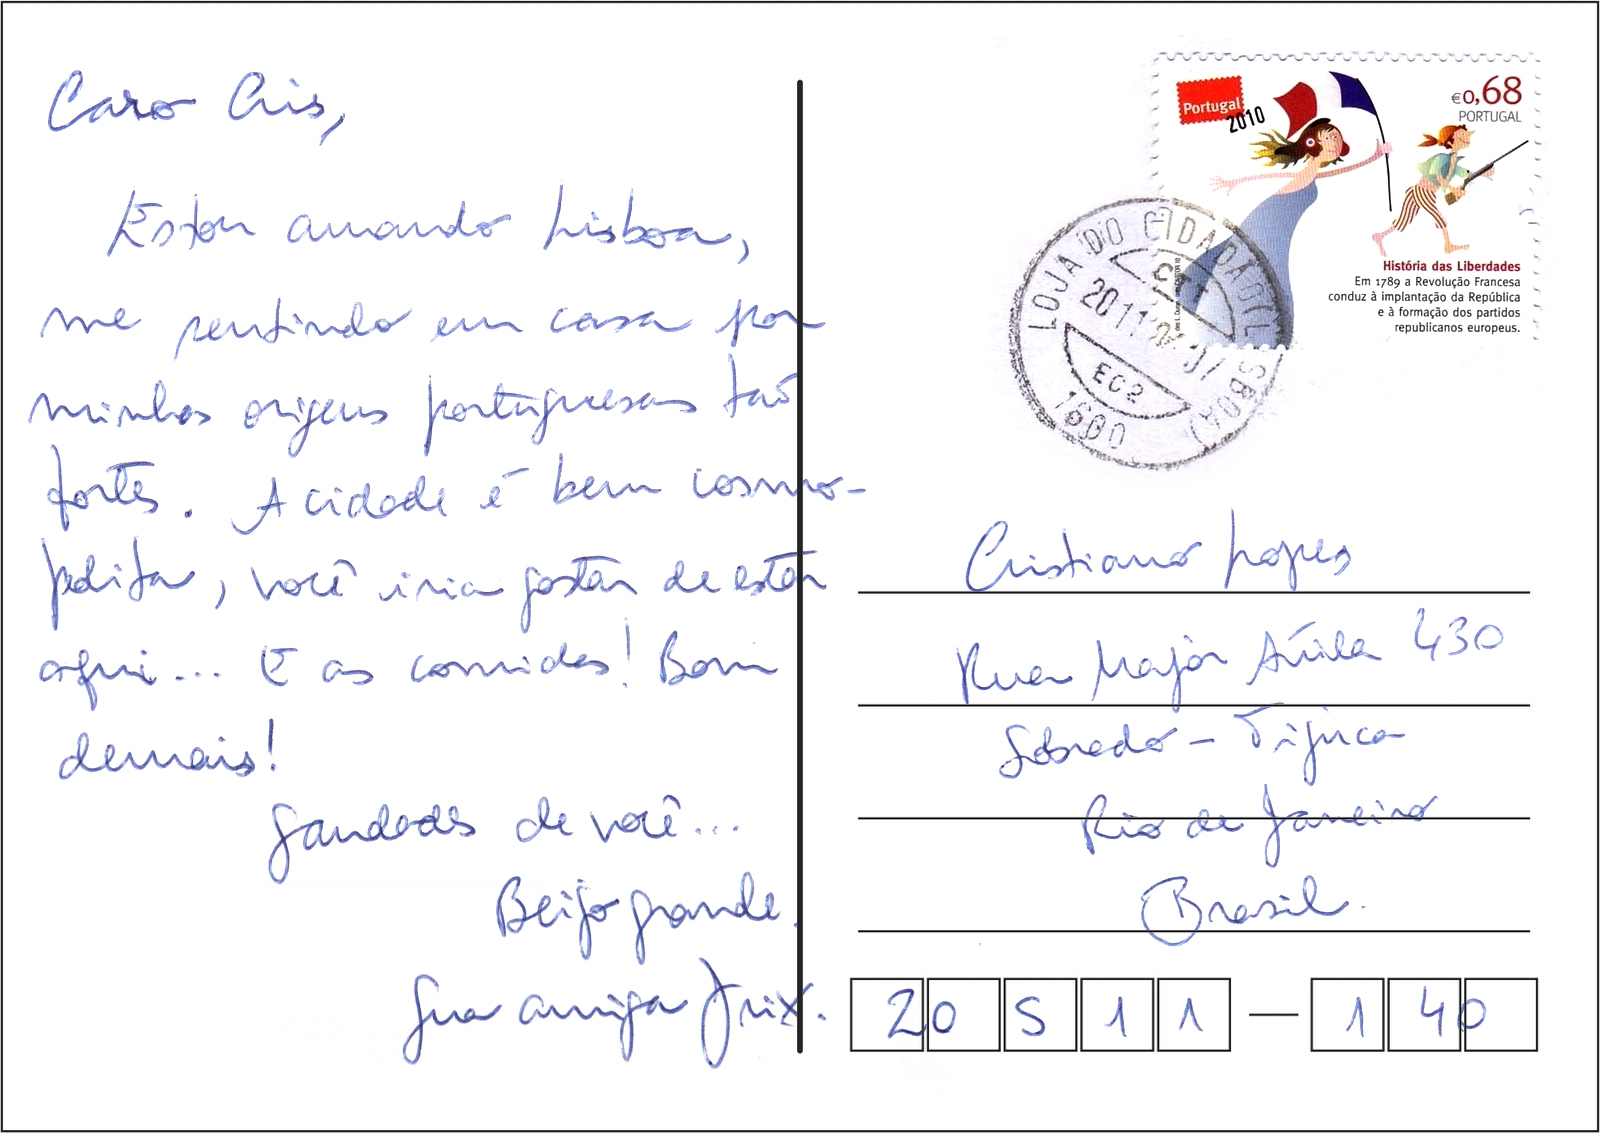 Caro Cris,
Estou amando Lisboa,
me sentindo em casa por
minhas origens portuguesas tão
fortes. A cidade é bem cosmo-
polita, você iria gostar de estar
aqui... E as comidas! Bom
demais!
Saudades de você...
Beijo grande.
Sua amiga Trix.
Portugal
2010
€0,68
PORTUGAL
História das Liberdades
Em 1789 a Revolução Francesa
conduz à implantação da República
e à formação dos partidos
republicanos europeus.
LOJA DO CIDADÃO (LISBOA)
EC2
1600
Cristiano Lopes
Rua Major Ávila 430
Sobrado - Tijuca
Rio de Janeiro
Brasil.
20 S 1 1 — 1 40